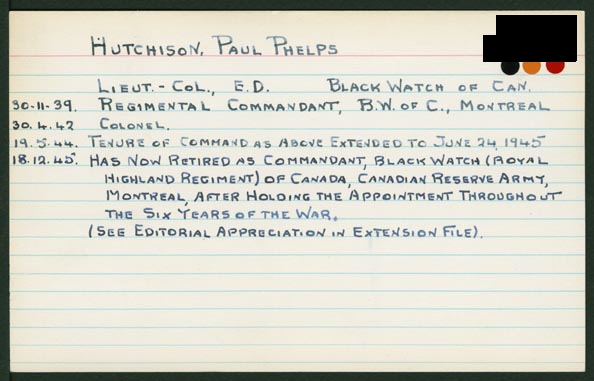 HUTCHISON, PAUL PHELPS
LIEUT.-COL., E.D. BLACK WATCH OF CAN.
30-11-39. REGIMENTAL COMMANDANT, B.W. OF C., MONTREAL
30.4.42 COLONEL.
19.5.44. TENURE OF COMMAND AS ABOVE EXTENDED TO JUNE 24, 1945
18.12.45. HAS NOW RETIRED AS COMMANDANT, BLACK WATCH (ROYAL
HIGHLAND REGIMENT) OF CANADA, CANADIAN RESERVE ARMY,
MONTREAL, AFTER HOLDING THE APPOINTMENT THROUGHOUT
THE SIX YEARS OF THE WAR.
(SEE EDITORIAL APPRECIATION IN EXTENSION FILE).